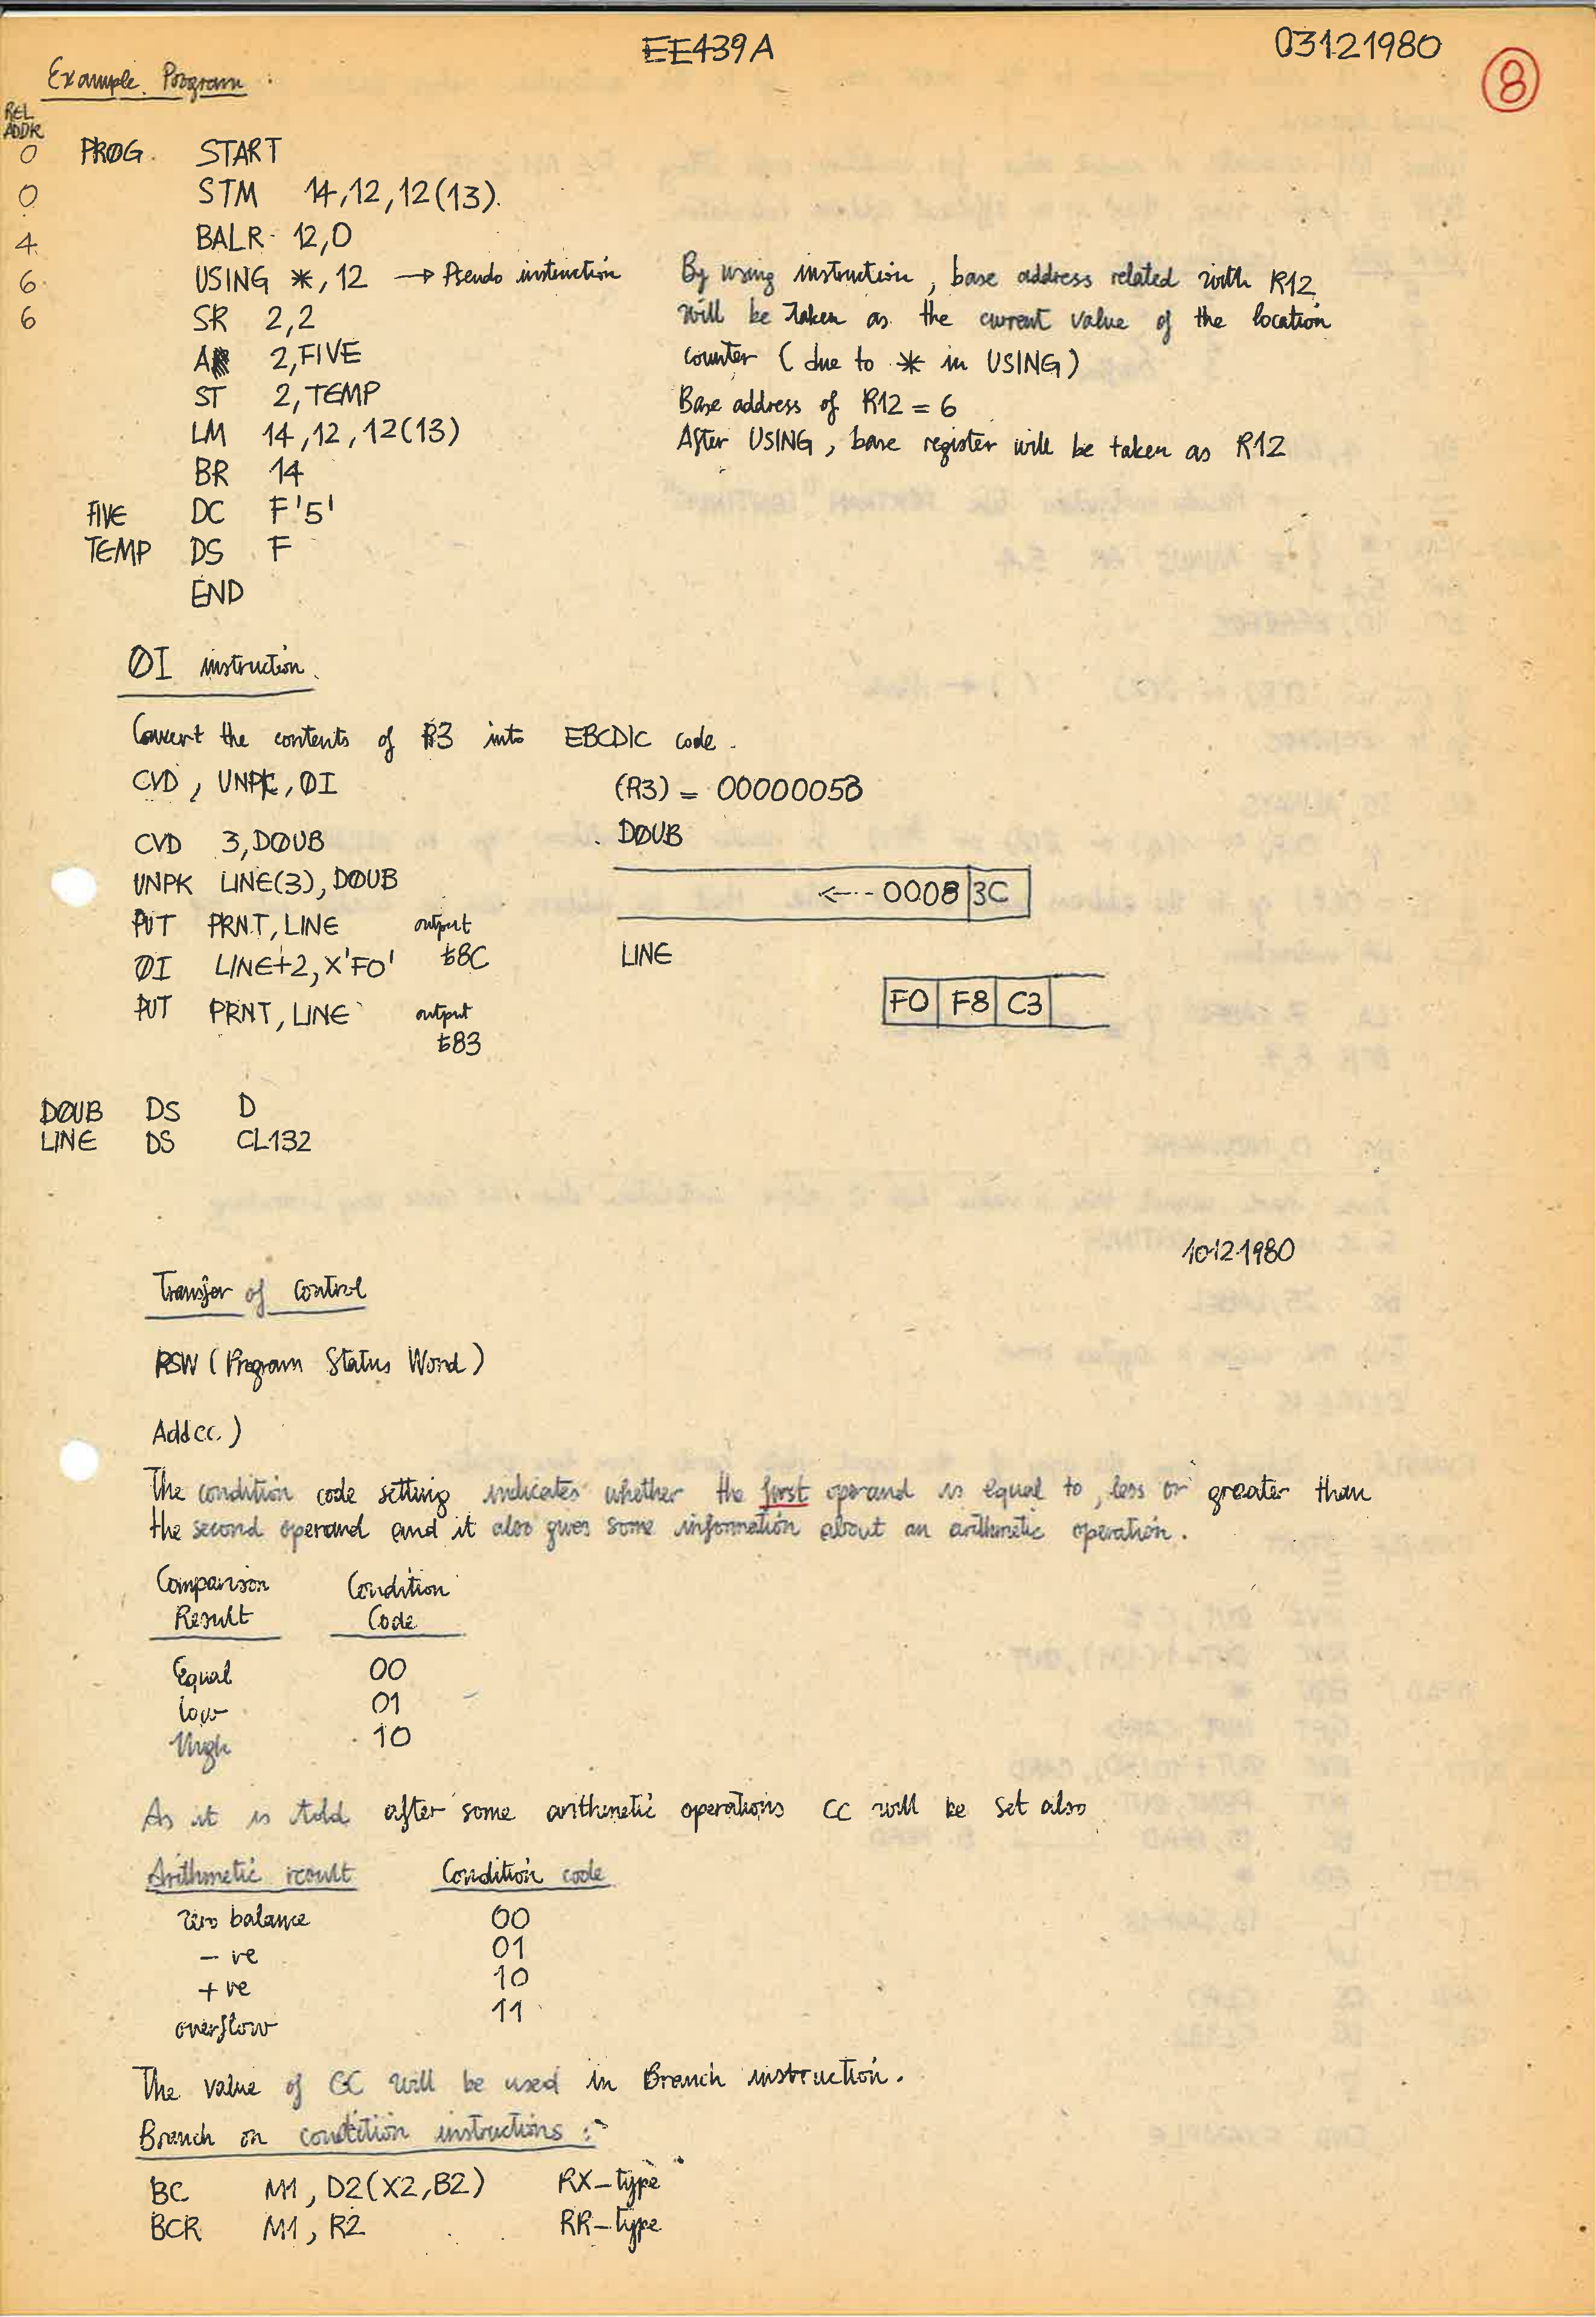 EE439A
03121980
8
Example Program:
REL
ADDR
0 PRØG START
0 STM 14,12,12(13).
4 BALR 12,0
6 USING *,12 → Pseudo instruction
6 SR 2,2
A 2,FIVE
ST 2,TEMP
LM 14,12,12(13)
BR 14
FIVE DC F'5'
TEMP DS F
END
By using instruction, base address related with R12
will be taken as the current value of the location
counter (due to * in USING)
Base address of R12 = 6
After USING, base register will be taken as R12
ØI instruction.
Convert the contents of R3 into EBCDIC code.
CVD, UNPK, ØI
(R3) = 00000053
CVD 3,DØUB
UNPK LINE(3), DØUB
PUT PRNT, LINE output
ƀ8C
ØI LINE+2,X'F0'
PUT PRNT, LINE output
ƀ83
DØUB
<--- 0008 3C
LINE
F0 F8 C3
DØUB DS D
LINE DS CL132
10121980
Transfer of Control
PSW (Program Status Word)
Add cc.)
The condition code setting indicates whether the first operand is equal to, less or greater than
the second operand and it also gives some information about an arithmetic operation.
Comparison Condition
Result Code
Equal 00
low 01
High 10
As it is told after some arithmetic operations CC will be set also
Arithmetic result Condition code
zero balance 00
- ve 01
+ ve 10
overflow 11
The value of CC will be used in Branch instruction.
Branch on condition instructions :-
BC M1, D2(X2,B2) RX-type
BCR M1, R2 RR-type